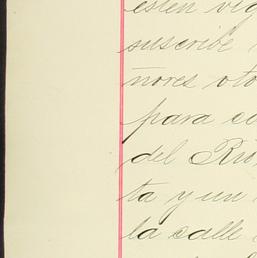 estén vig
suscribe
ñores oto
para co
del Rio
ta y un
la calle